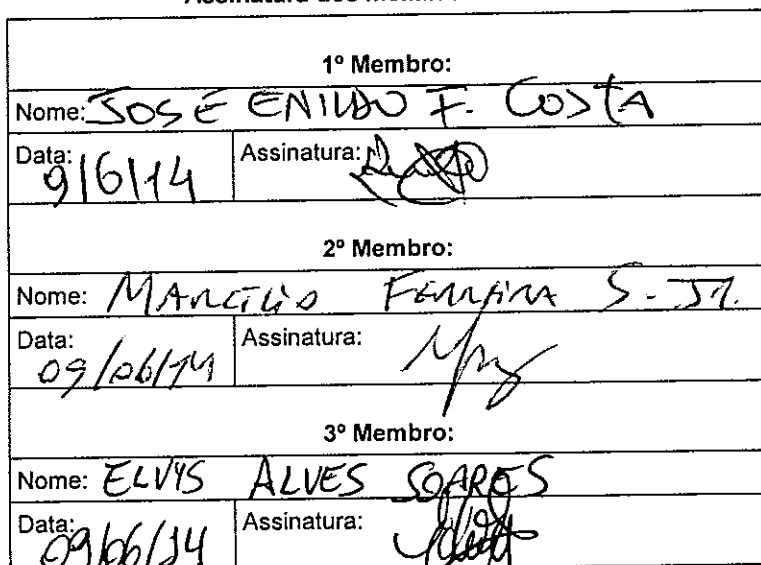 1º Membro:
Nome: JOSE ENILDO F. COSTA
Data: 9/6/14 Assinatura:
2º Membro:
Nome: MARCÍLIO FERREIRA S. JR.
Data: 09/06/14 Assinatura:
3º Membro:
Nome: ELVYS ALVES SOARES
Data: 09/06/14 Assinatura: